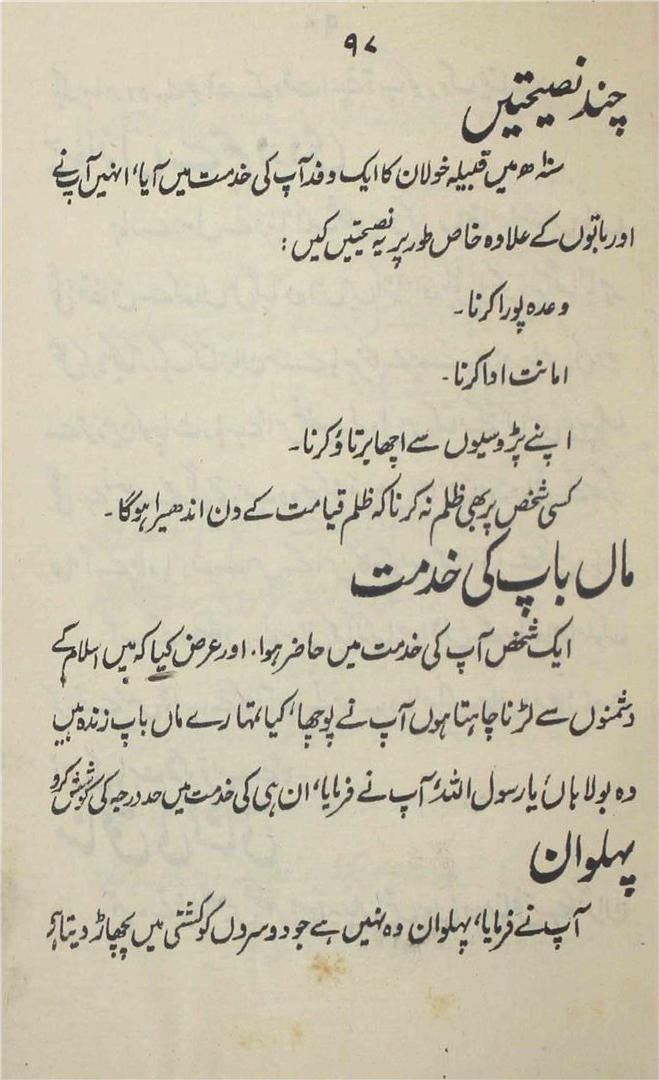 ۹۷
چند نصیحتیں
سنہ ۱۰ھ میں قبیلہ خولان کا ایک وفد آپ کی خدمت میں آیا، انہیں آپ نے
اور باتوں کے علاوہ خاص طور پر یہ نصیحتیں کیں:
وعدہ پورا کرنا۔
امانت ادا کرنا۔
اپنے پڑوسیوں سے اچھا برتاؤ کرنا۔
کسی شخص پر بھی ظلم نہ کرنا کہ ظلم قیامت کے دن اندھیرا ہوگا۔
ماں باپ کی خدمت
ایک شخص آپ کی خدمت میں حاضر ہوا۔ اور عرض کیا کہ میں اسلام کے
دشمنوں سے لڑنا چاہتا ہوں آپ نے پوچھا، کیا تمہارے ماں باپ زندہ ہیں
وہ بولا ہاں یا رسول اللہؐ آپ نے فرمایا، ان ہی کی خدمت میں حد درجہ کی کوشش کرو
پہلوان
آپ نے فرمایا، پہلوان وہ نہیں ہے جو دوسروں کو کشتی میں پچھاڑ دیتا ہو